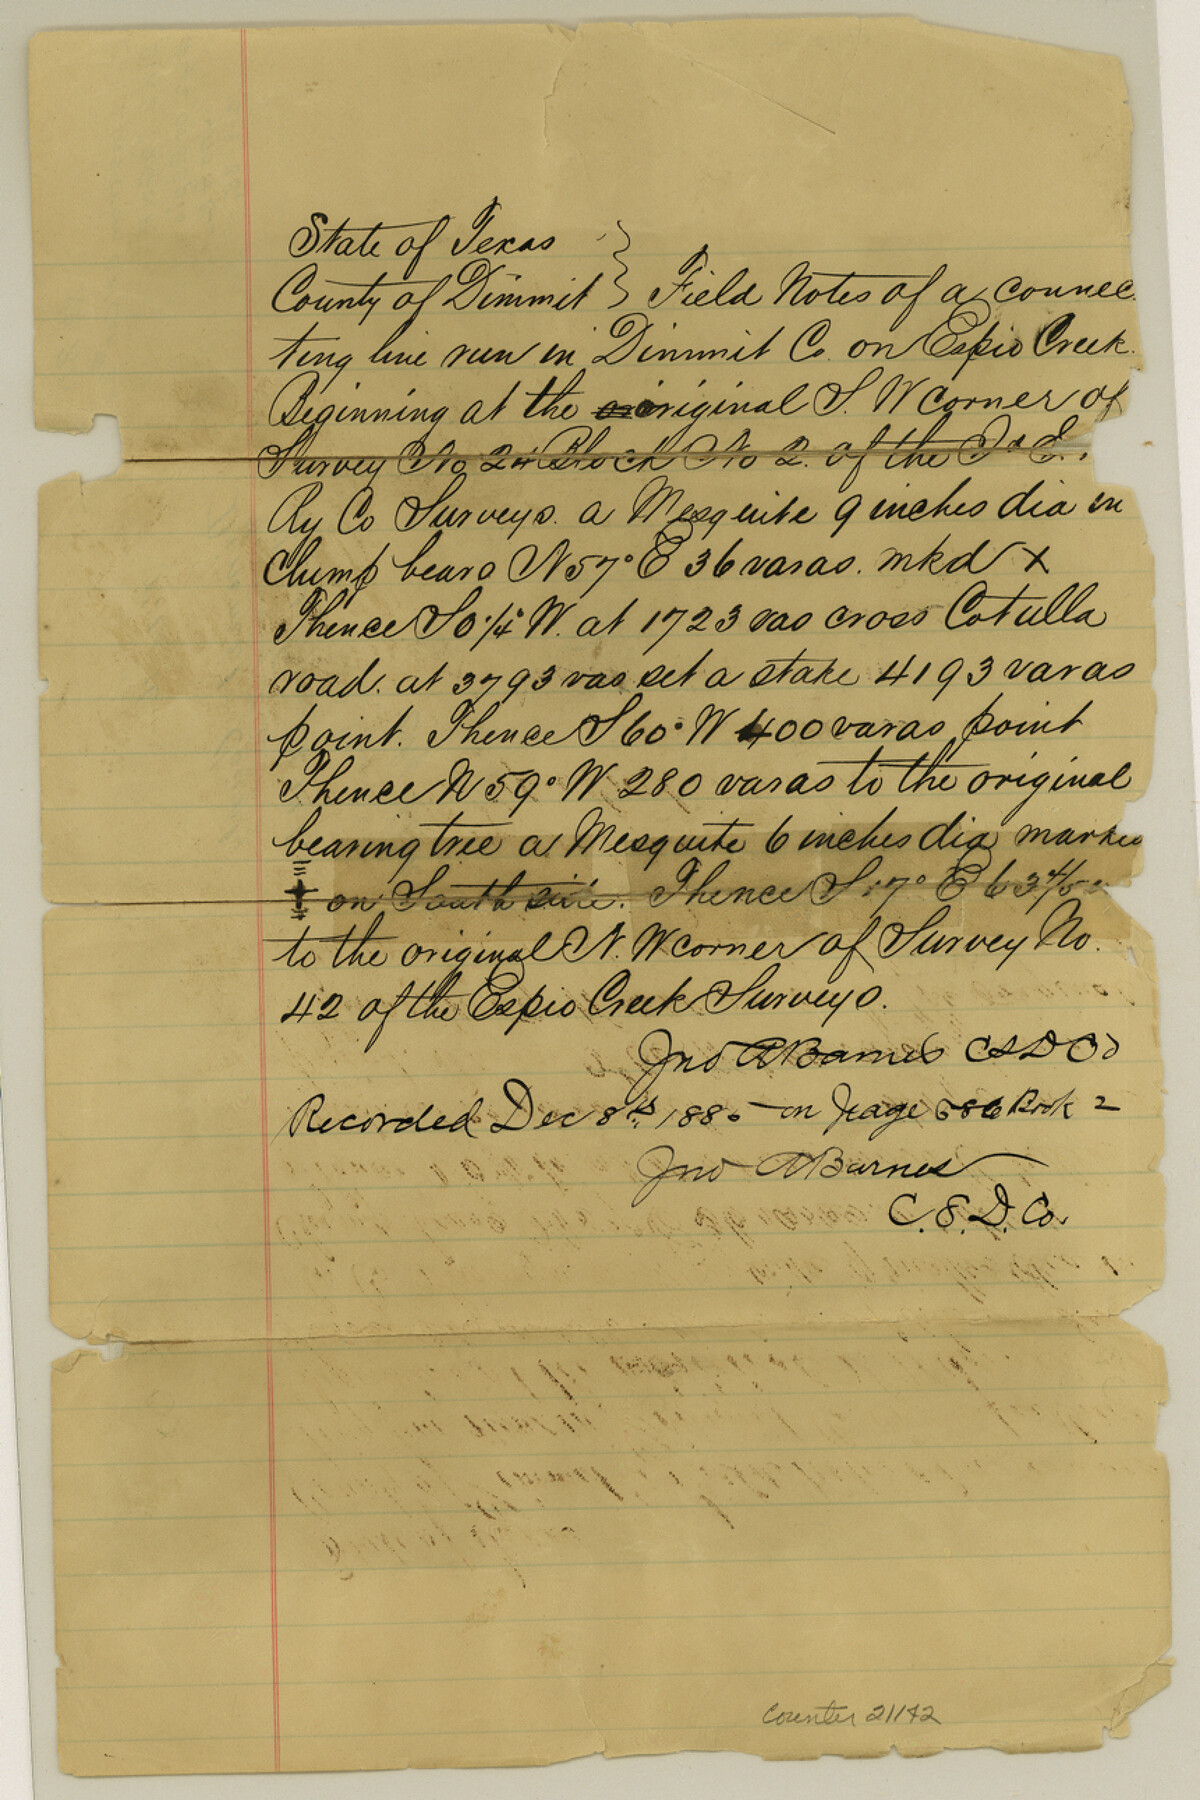 State of Texas }
County of Dimmit } Field Notes of a connec
ting line run in Dimmit Co. on Espio Creek.
Beginning at the original S. W corner of
Survey No 24 Block No 2. of the I & G.
Ry Co Surveys. a Mesquite 9 inches dia in
Clump bears N 57° E 36 varas. mkd X
Thence S 0 1/4° W. at 1723 vas cross Cotulla
road. at 3793 vas set a stake 4193 varas
point. Thence S 60° W 400 varas point
Thence N 59° W 280 varas to the original
bearing tree a Mesquite 6 inches dia marked
on South side. Thence S 17° E 63 4/5
to the original N. W corner of Survey No.
42 of the Espio Creek Surveys.
Jno A Barnes C S D Co
Recorded Dec 8th, 1885 on Page 586 Book 2
Jno A Barnes
C. S. D. Co.
Counter 21142